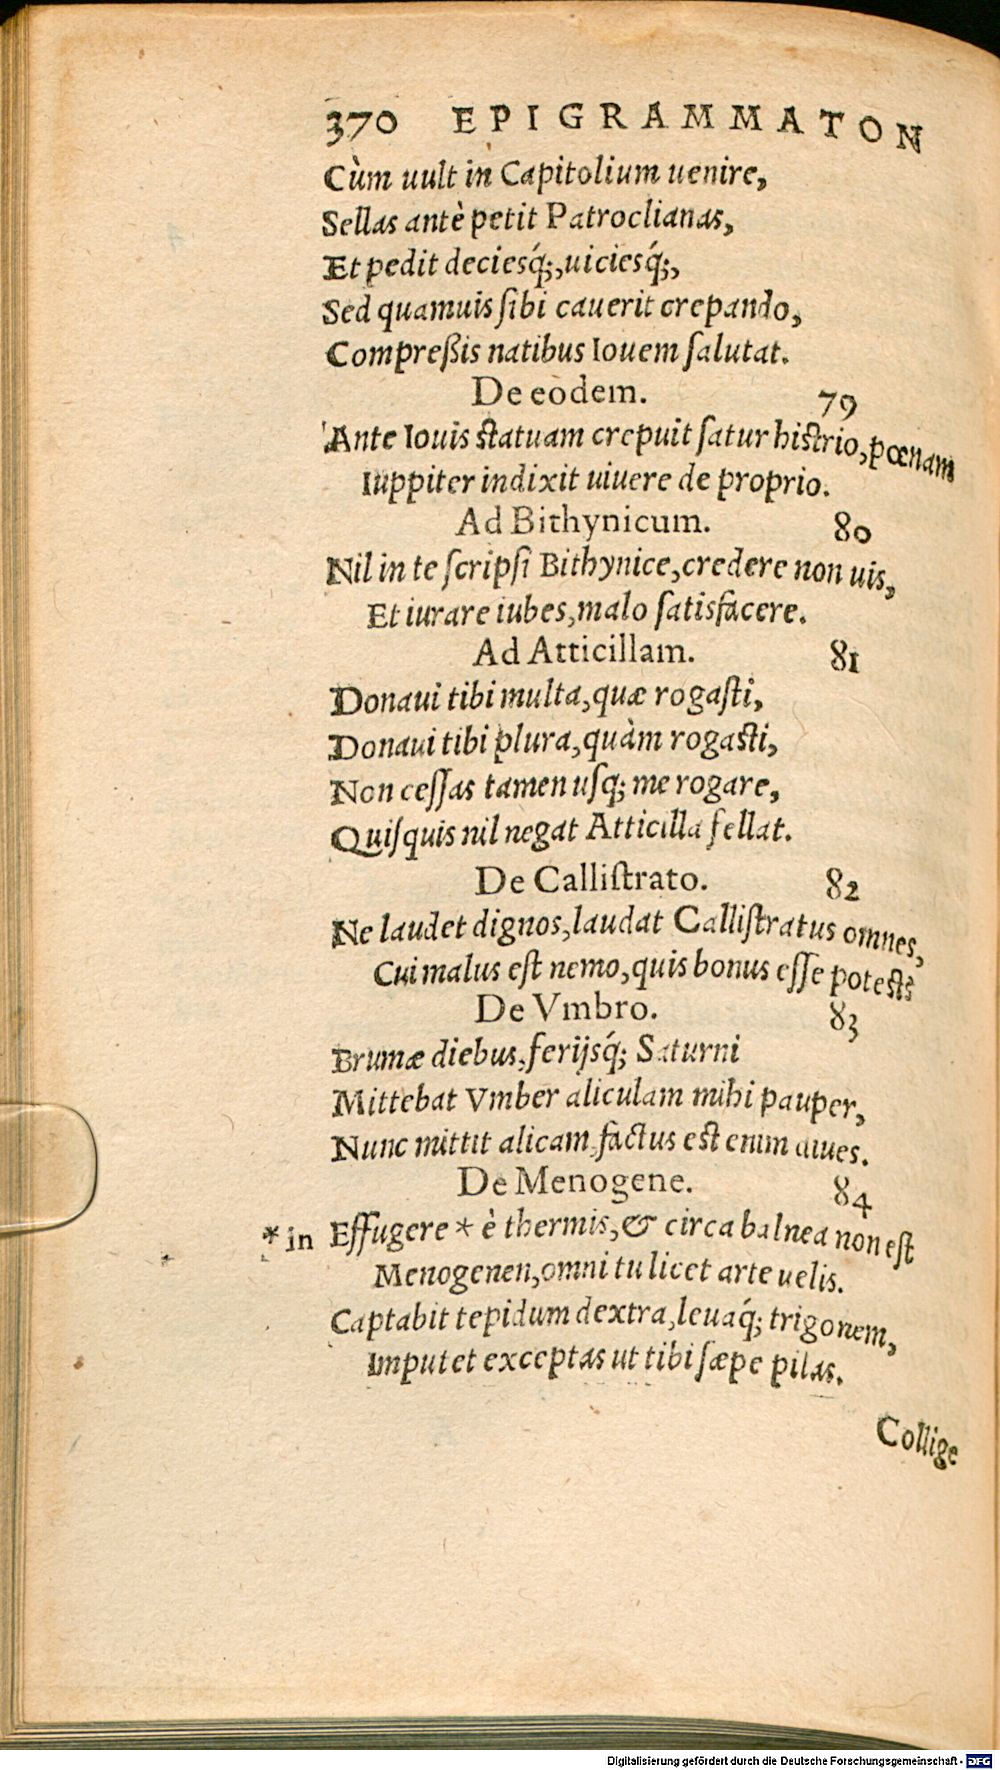 370 EPIGRAMMATON
Cùm uult in Capitolium uenire,
Sellas antè petit Patroclianas,
Et pedit deciesq́;, uiciesq́;,
Sed quamuis ſibi cauerit crepando,
Compreßis natibus Iouem ſalutat.
De eodem. 79
Ante Iouis ſtatuam crepuit ſatur hiſtrio, pœnam
Iuppiter indixit uiuere de proprio.
Ad Bithynicum. 80
Nil in te ſcripſi Bithynice, credere non uis,
Et iurare iubes, malo ſatisfacere.
Ad Atticillam. 81
Donaui tibi multa, quæ rogaſti,
Donaui tibi plura, quàm rogaſti,
Non ceſſas tamen uſq; me rogare,
Quiſquis nil negat Atticilla fellat.
De Calliſtrato. 82
Ne laudet dignos, laudat Calliſtratus omnes,
Cui malus eſt nemo, quis bonus eſſe poteſt?
De Vmbro. 83
Brumæ diebus, ferijsq́; Saturni
Mittebat Vmber aliculam mihi pauper,
Nunc mittit alicam, factus eſt enim diues.
De Menogene. 84
*in Effugere * è thermis, & circa balnea non eſt
Menogenen, omni tu licet arte uelis.
Captabit tepidum dextra, leuaq́; trigonem,
Imputet exceptas ut tibi ſæpe pilas.
Collige
Digitalisierung gefördert durch die Deutsche Forschungsgemeinschaft - DFG